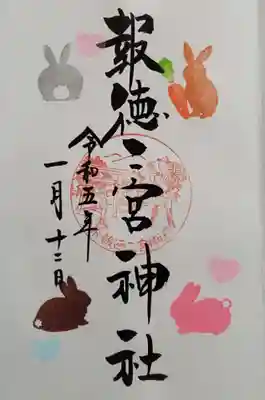 報徳二宮神社
令和五年
一月十二日